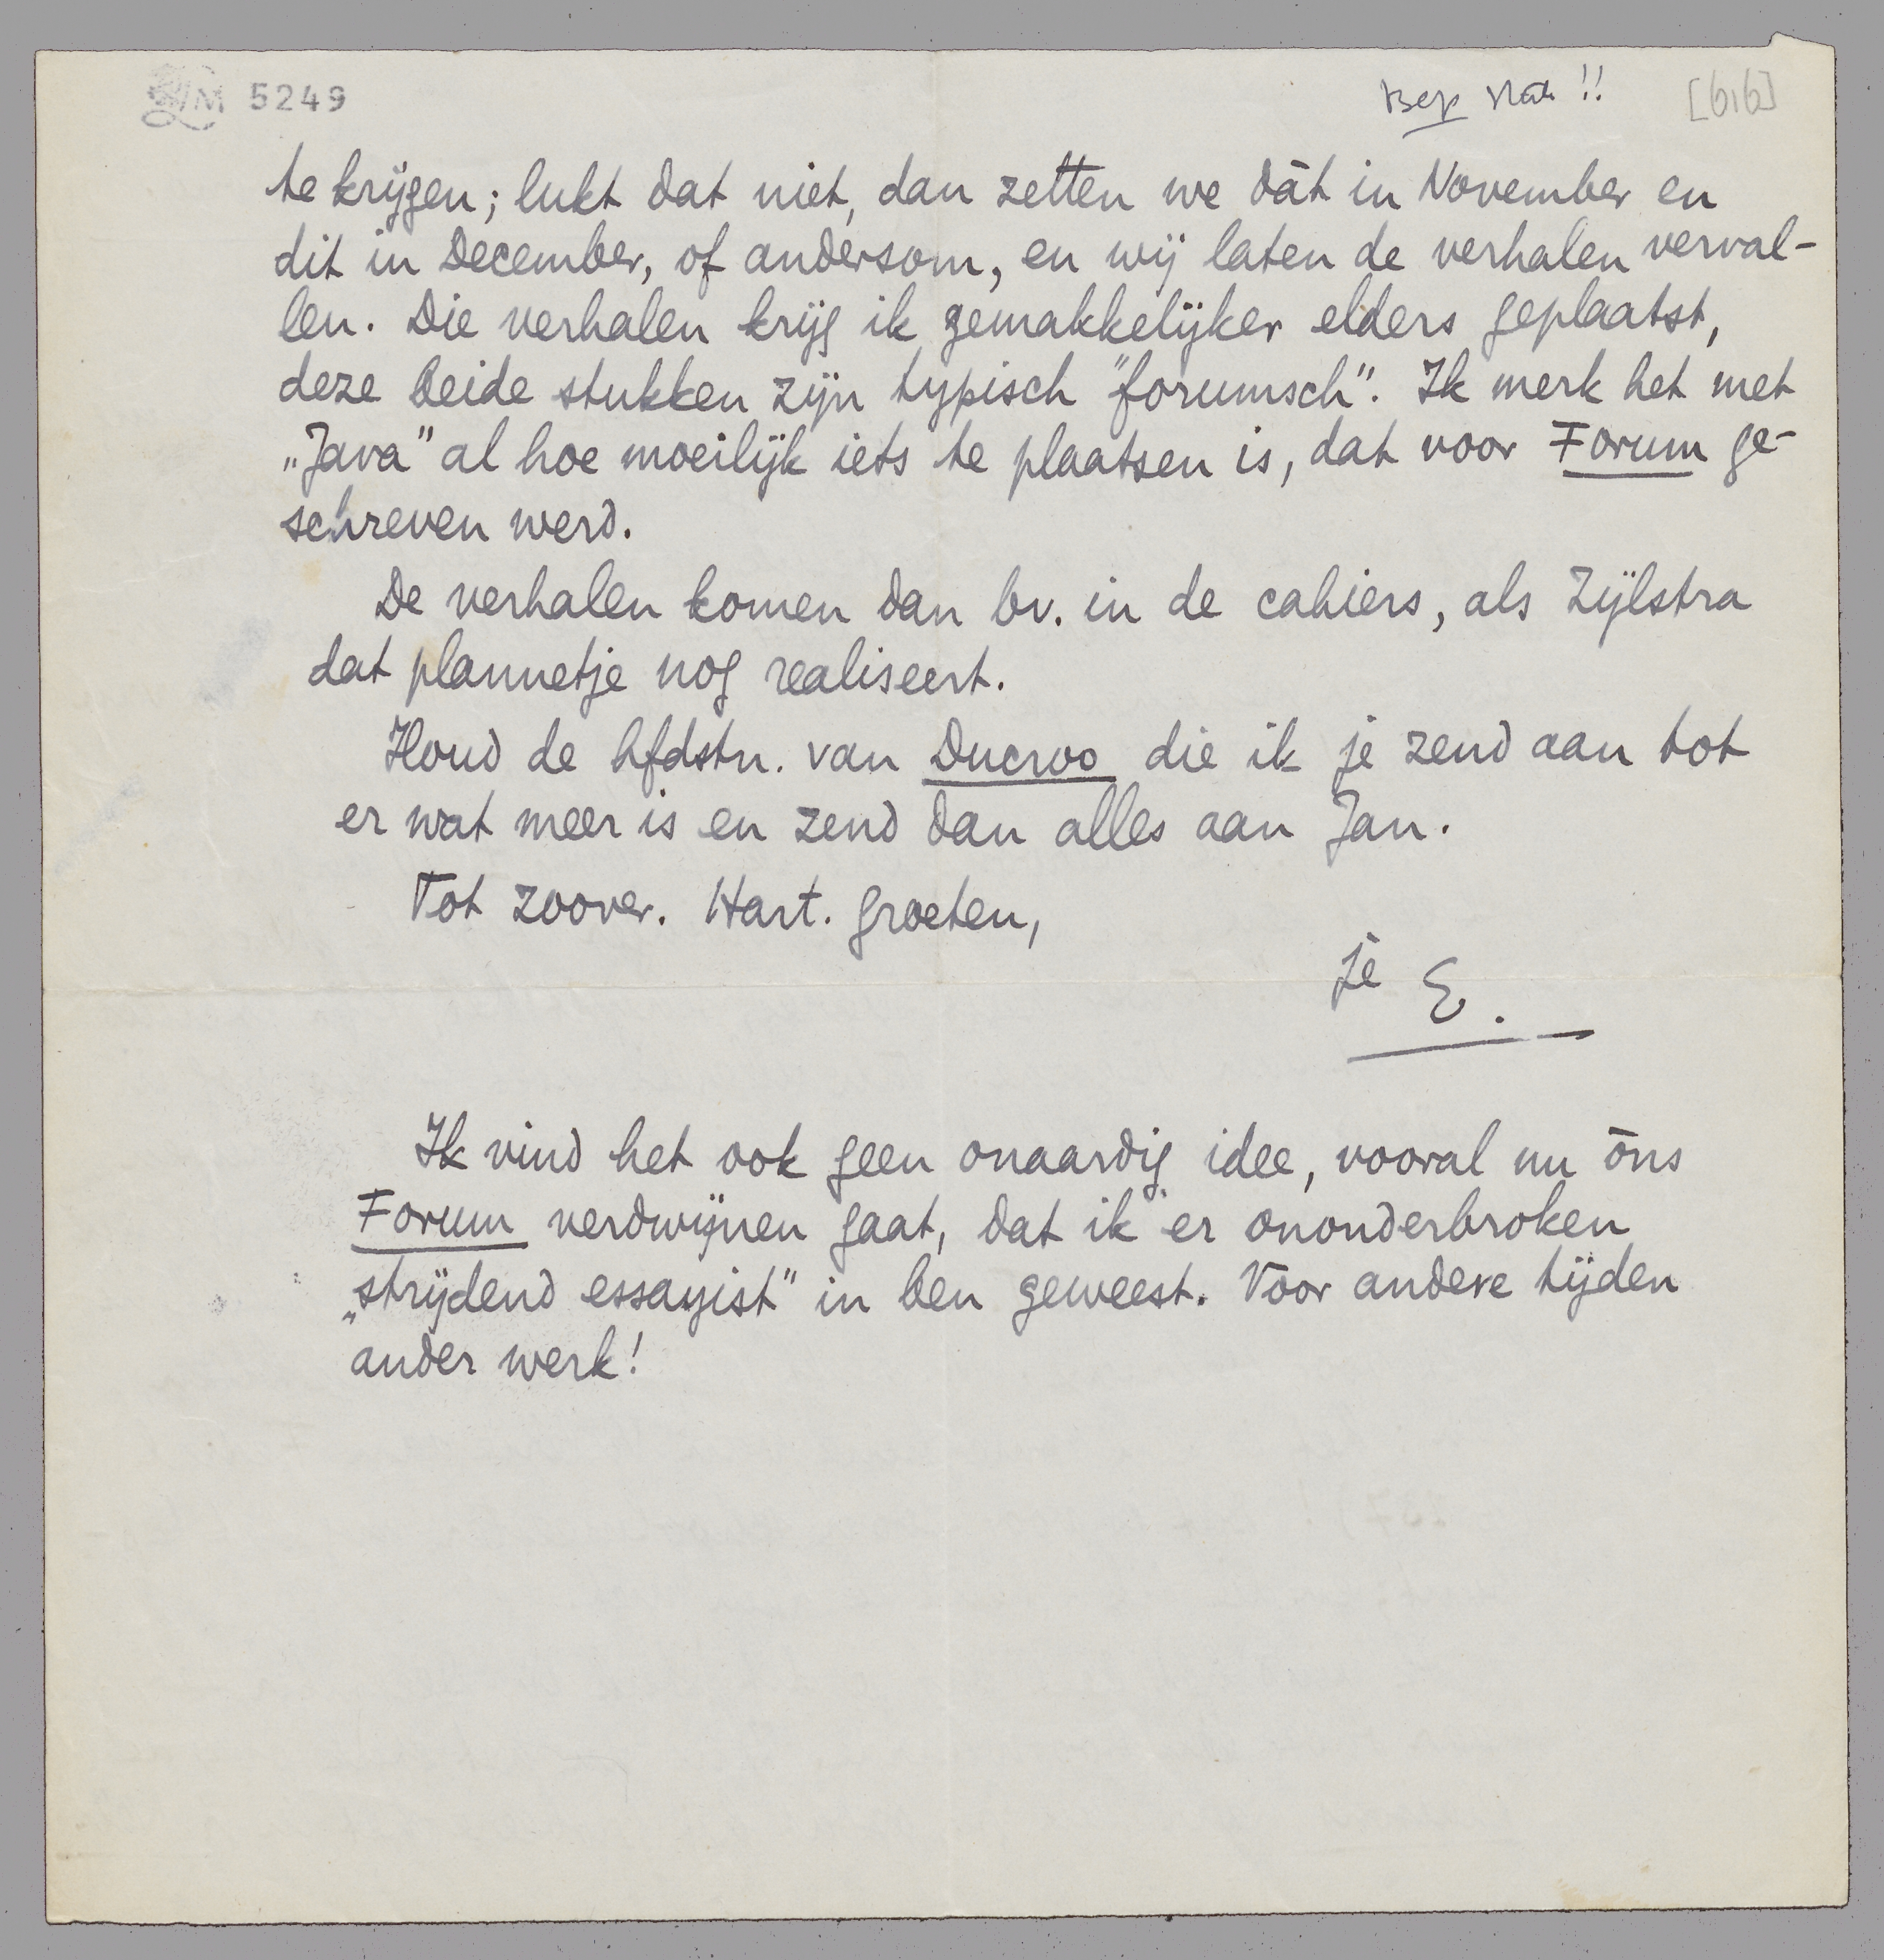 LM 5249
[616]
te krijgen; lukt dat niet, dan zetten we dàt in November en
dit in December, of andersom, en wij laten de verhalen verval-
len. Die verhalen krijg ik gemakkelijker elders geplaatst,
deze beide stukken zijn typisch "forumsch". Ik merk het met
„Java" al hoe moeilijk iets te plaatsen is, dat voor Forum ge-
schreven werd.
De verhalen komen dan bv. in de cahiers, als Zijlstra
dat plannetje nog realiseert.
Houd de hfdstn. van Ducroo die ik je zend aan tot
er wat meer is en zend dan alles aan Jan.
Tot zoover. Hart. groeten,
je E.
Ik vind het ook geen onaardig idee, vooral nu òns
Forum verdwijnen gaat, dat ik er ononderbroken
„strijdend essayist" in ben geweest. Voor andere tijden
ander werk!